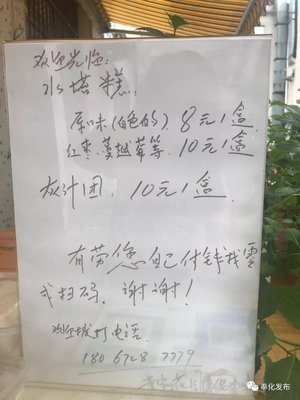 欢迎光临:
水塔糕:
原味(白色的) 8元1盒
红枣.蔓越莓等. 10元1盒
灰汁团: 10元1盒
有劳您自己付钱找零
或扫码, 谢谢!
欢迎拨打电话
180 6728 7779
奉化发布